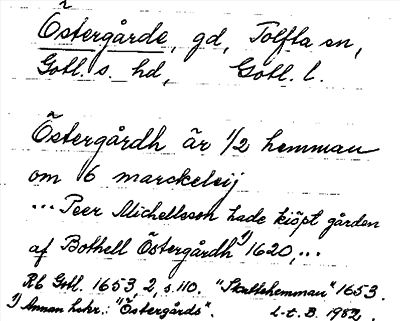 Östergårde, gd, Tofta sn,
Gotl. s. hd, Gotl. l.
Östergårdh är 1/2 hemman
om 6 marckeleij
... Peer Michellsson hade kiöpt gården
af Bothell Östergårdh 1) 1620, ...
Rb Gotl. 1653 2, s. 110. "Skattehemman" 1653.
1) Annan hskr.: "Östergårds". L-t. B. 1982.